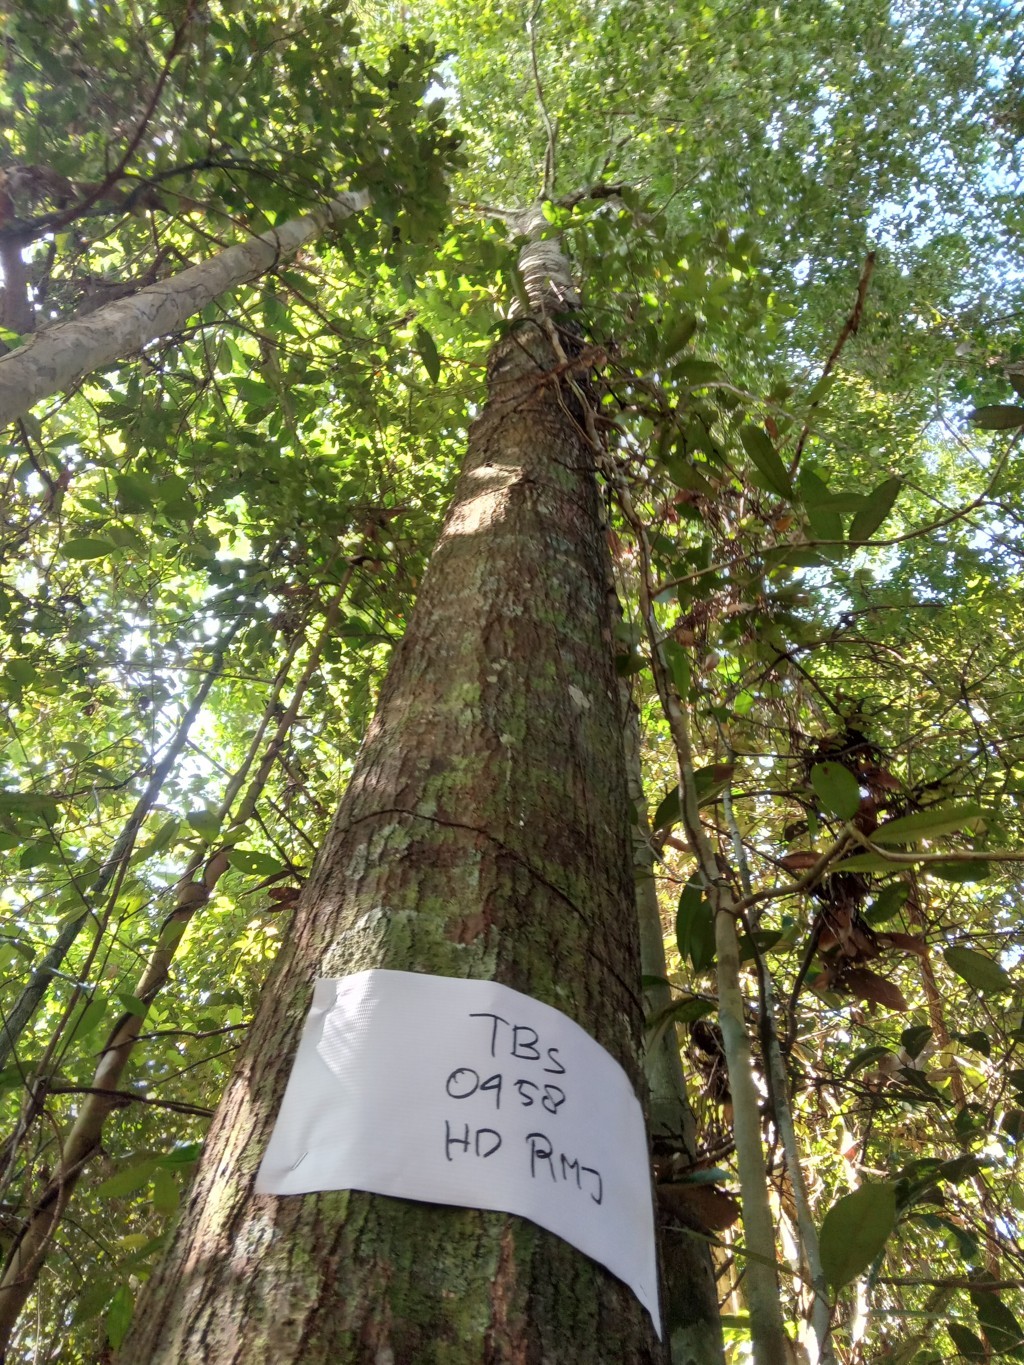 TBS
0958
HD RMJ